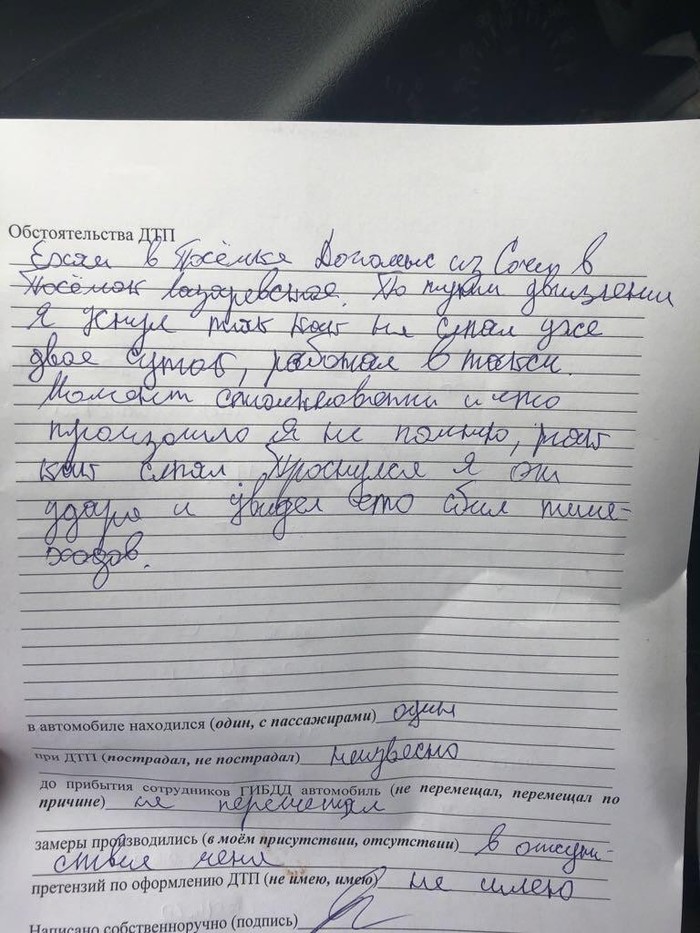 Обстоятельства ДТП
Ехал в Посёлка Дагомыс из Сочи в
Посёлок Лазаревское. По пути движении
Я уснул так как не спал уже
двое суток, работал в такси.
Момент столкновении и что
произошло Я не помню, так
как спал. Проснулся я от
удара и увидел сто сбил пише-
ходов.
в автомобиле находился (один, с пассажирами) один
при ДТП (пострадал, не пострадал) неизвесно
до прибытия сотрудников ГИБДД автомобиль (не перемещал, перемещал по
причине) не перемещал
замеры производились (в моём присутствии, отсутствии) в отсуц-
ствия меня
претензий по оформлению ДТП (не имею, имею) не имею
Написано собственноручно (подпись)